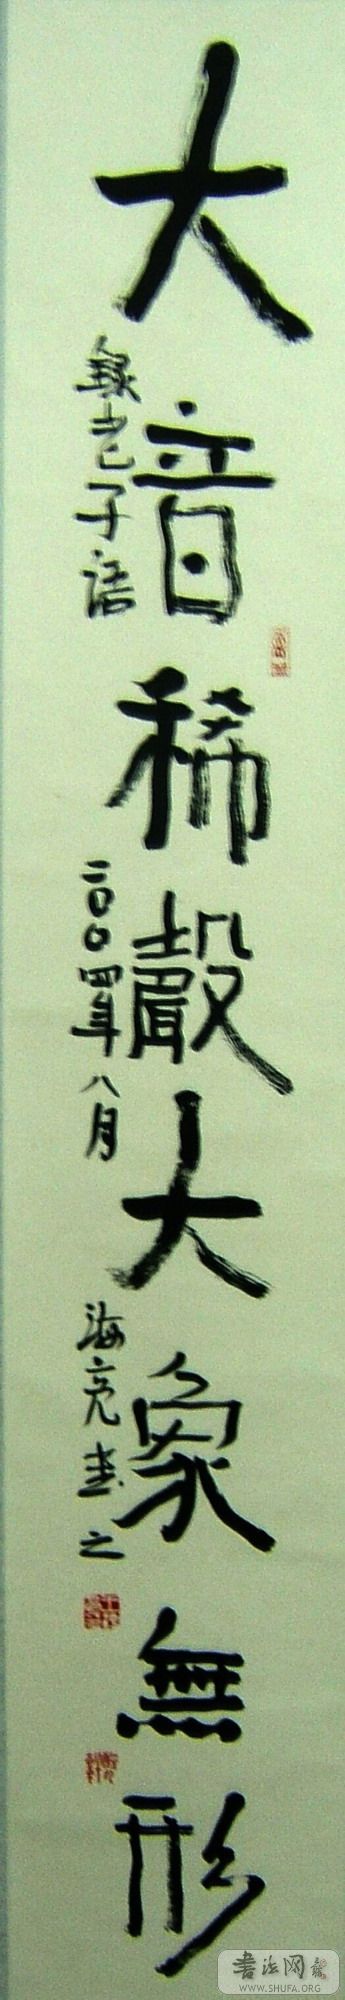 大音稀聲大象無形
錄老子語
二〇〇四年八月
海亮書之
書法网
WWW.SHUFA.ORG